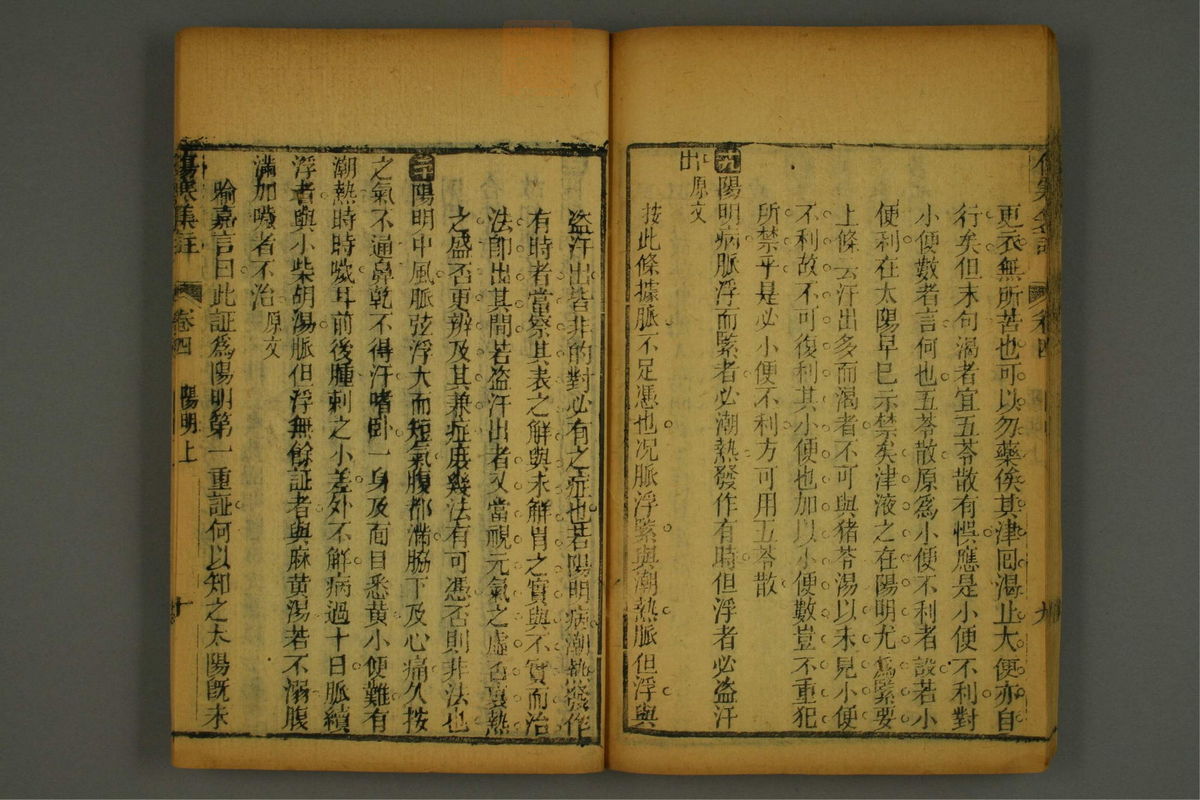 更衣無所苦也可以勿藥俟其津囘渴止大便亦自
行矣但末句渴者宜五苓散有悞應是小便不利對
小便數者言何也五苓散原爲小便不利者設若小
便利在太陽早已示禁矣津液之在陽明尤爲緊要
上條云汗出多而渴者不可與猪苓湯以未見小便
不利故不可復利其小便也加以小便數豈不重犯
所禁乎是必小便不利方可用五苓散
十九陽明病脈浮而緊者必潮熱發作有時但浮者必盜汗
出原文
按此條據脈不足憑也况脈浮緊與潮熱脈但浮與
盜汗出皆非的對必有之症也若陽明病潮熱發作
有時者當察其表之解與未解胃之實與不實而治
法即出其間若盜汗出者又當覗元氣之虛否裏熱
之盛否更辨及其兼症庶幾法有可憑否則非法也
二十陽明中風脈弦浮大而短氣腹都滿脇下及心痛久按
之氣不通鼻乾不得汗嗜卧一身及面目悉黃小便難有
潮熱時時噦耳前後腫刺之小差外不解病過十日脈續
浮者與小柴胡湯脈但浮無餘証者與麻黃湯若不溺腹
滿加噦者不治原文
喻嘉言曰此証爲陽明第一重証何以知之太陽旣未
傷寒集註
卷四
陽明上
十
卷四
九